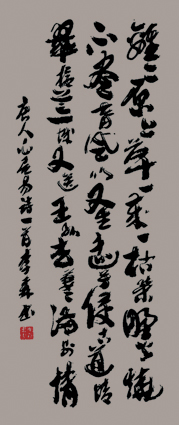 離々原上草一歲一枯榮野火燒
不盡春風吹又生遠芳侵古道晴
翠接荒城又送王孫去萋々滿別情
唐人白居易詩一首李森書